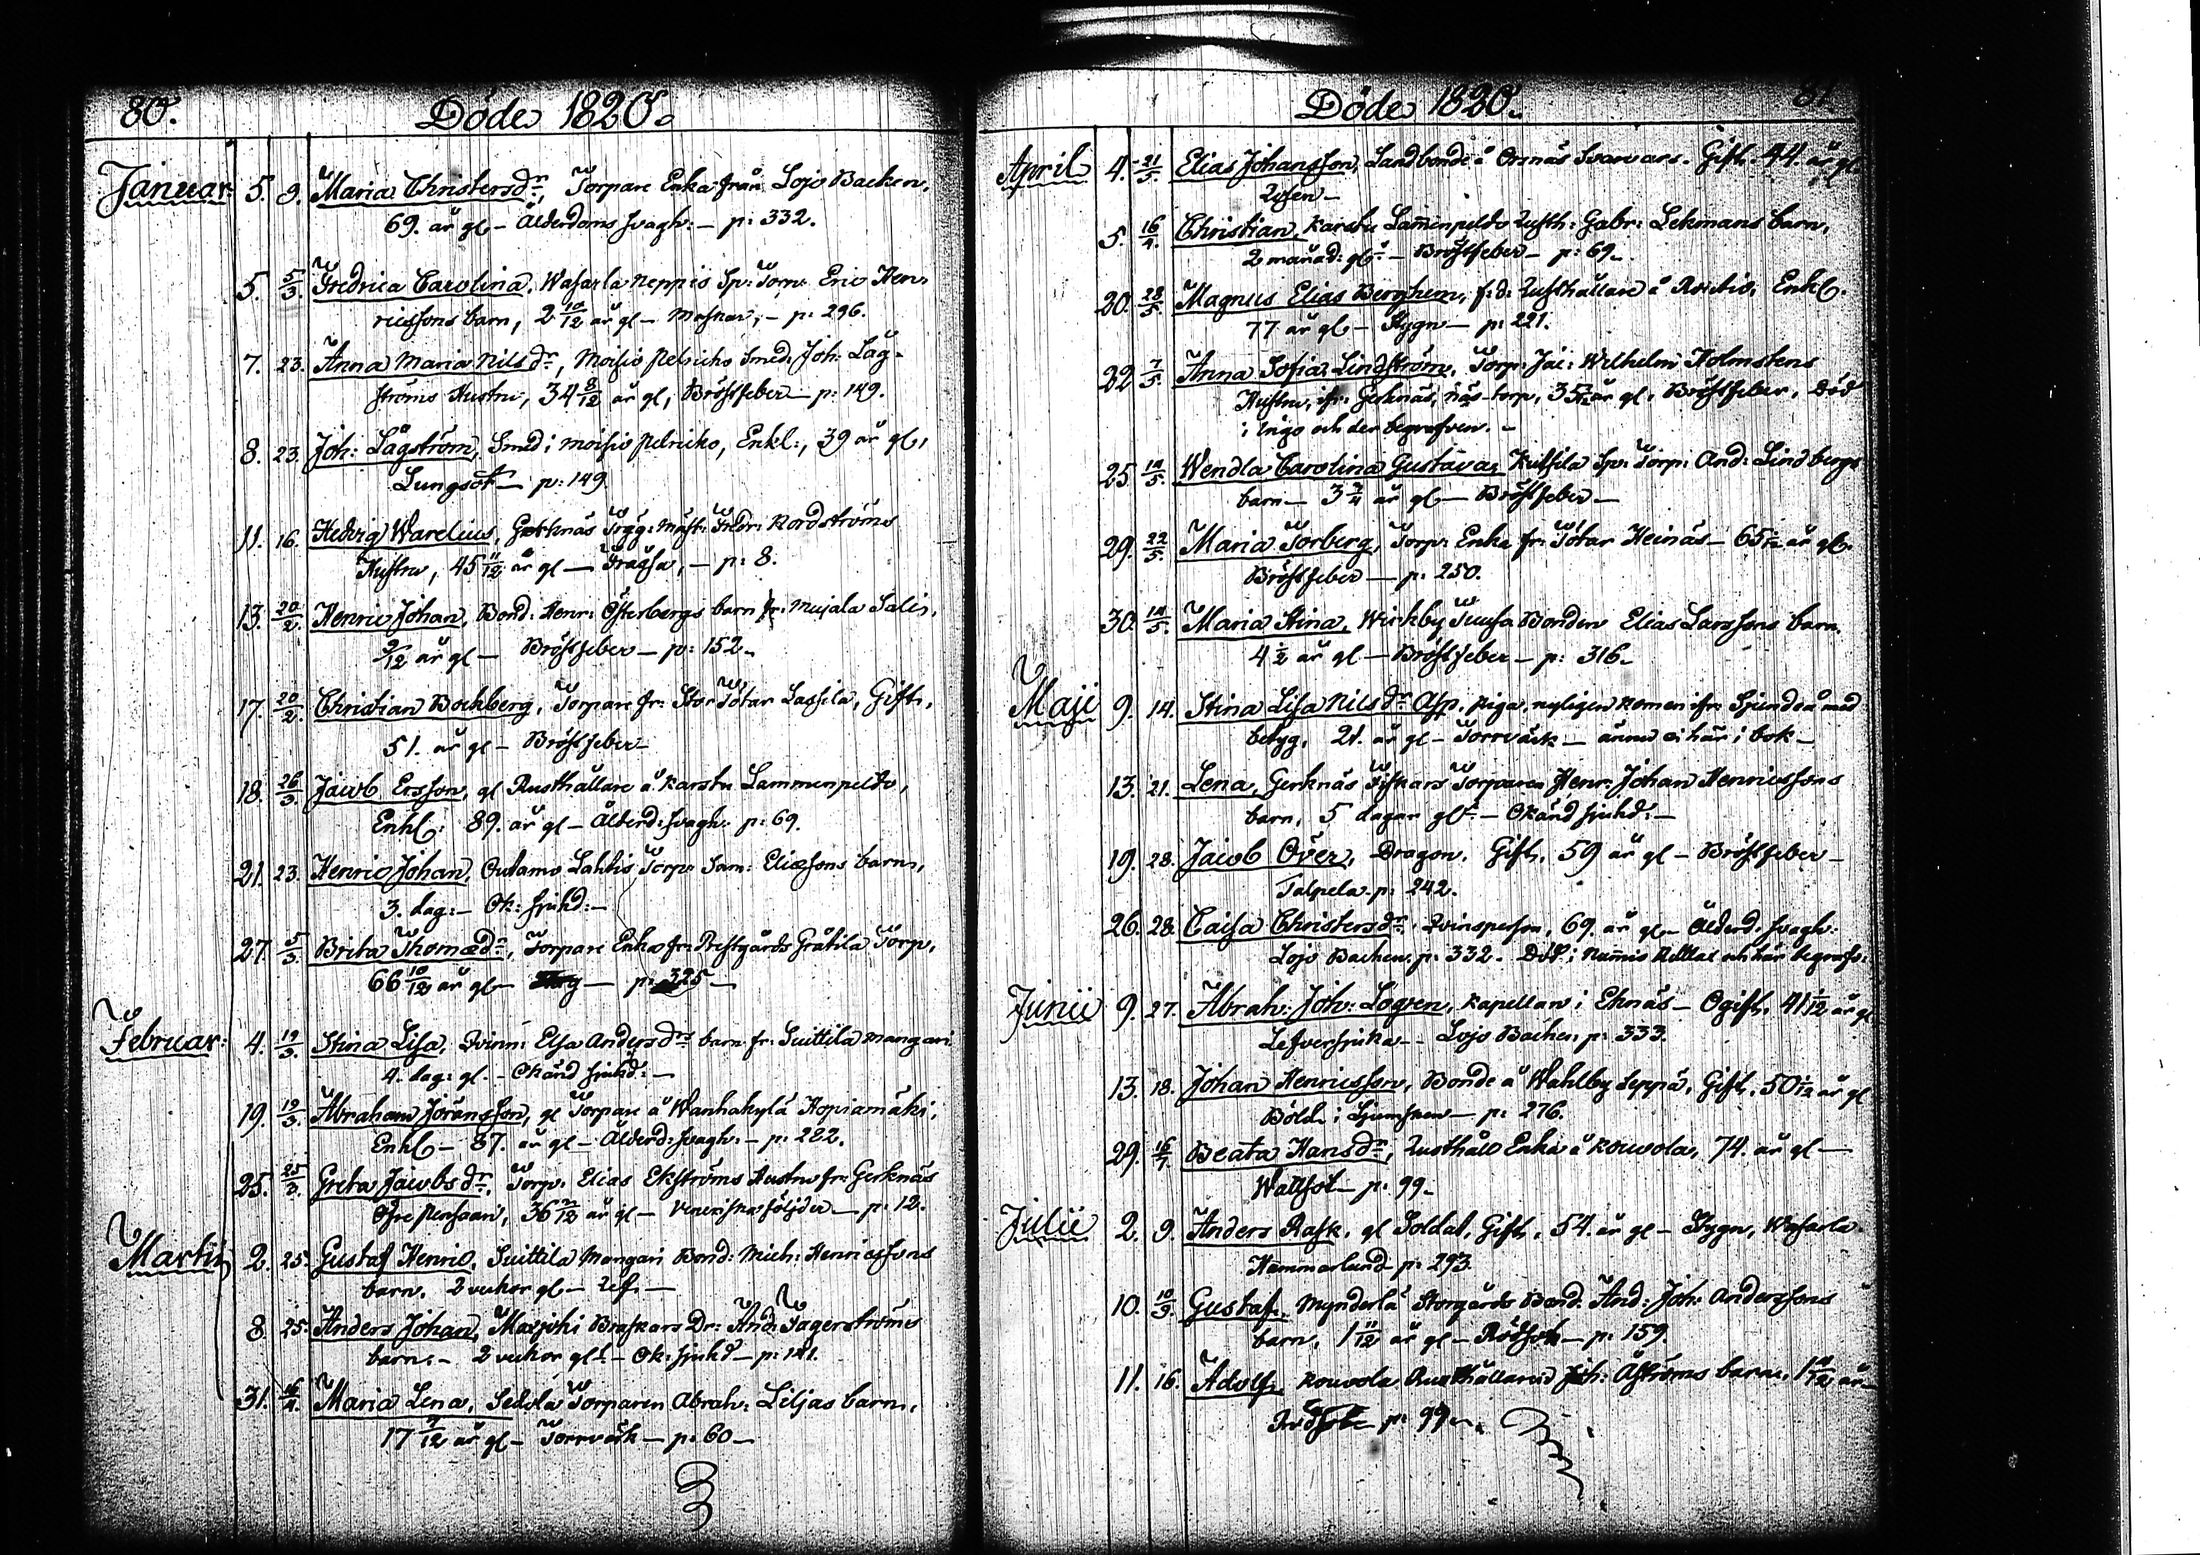 80.
Döde 1820.
Januar: 5. 9. Maria Christersdr, Torpare Enka från Lojo Backen,
69. år gl – Ålderdoms svagh: – p: 332.
5. 5/3. Fredrica Carolina, Wasarla Neppis Sp: Torp: Eric Hen-
ricssons barn, 2 10/12 år gl – – p: 296.
7. 23. Anna Maria Nilsdr, Moisio Pelricko Smed: Joh: Låg-
ströms Hustru, 34 8/12 år gl, Bröstfeber – p: 149.
8. 23. Joh: Lågström, Smed i Moisio Pelricko, Enkl:, 39 år gl,
Lungsot – p: 149.
11. 16. Hedvig Warelius, Gerknäs Träg: mäst: Fredr: Nordströms
Hustru, 45 11/12 år gl – – p: 8.
13. 20/2. Henric Johan, Bond: Henr: Österbergs barn fr: Muijala Salis,
9/12 år gl – Bröstfeber – p: 152 –
17. 20/2. Christian Bockberg, Torpare fr: Stor Tötar Lassila, Gift,
51. år gl – Bröstfeber –
18. 26/3. Jacob Ersson, gl Rusthållare å Karstu Lammenpelto,
Enkl: 89. år gl – Ålderd: svagh: p: 69.
21. 23. Henric Johan, Outamo Lahtis Torp: Sam: Eliæsons barn,
3. dag: – Ok: sjukd: –
27. 5/3. Brita Thomædr, Torpare Enka fr: Prestgårds Gråtila Torp,
66 10/12 år gl – – p: 325 –
Februar: 4. 19/3. Stina Lisa, Qvinn: Elsa Andersdrs barn fr: Suittila Mangari
4. dag: gl. – Okänd sjukd: –
19. 19/3. Abraham Joransson, gl Torpare å Wanhakylä Kopiamäki,
Enkl – 87. år gl – Ålderd: svagh: – p: 282.
25. 25/3. Greta Jacobsdr, Torp: Elias Ekströms Hustru fr: Gerknäs
36 7/12 år gl – Veneriska följder – p: 12.
Martii 2. 25. Gustaf Henric, Suittila Mangari Bond: Mich: Henricssons
barn, 2 veckor gl –
8. 25. Anders Johan, Maxjoki Braskars Dr: And: Fagerströms
barn. – 2 veckor glt – Ok: sjukd – p: 141.
31. 16/4. Maria Lena, Torparen Abrah: Liljas barn,
17 7/12 år gl – Torrvärk – p: 60 –
81.
Döde 1820.
April 4. 21/5. Elias Johansson, Landbonde å Ormnäs Svarvars. Gift. 44. år gl
5. 16/4. Christian, Karstu Lammenpelto Rusth: Gabr: Lekmans barn,
2 månad: glt – Bröstfeber – p: 69 –
20. 28/5. Magnus Elias Berghem, f: d: Rusthållare å Enkl.
77 år gl – Stygn – p: 221.
22 7/5. Anna Sofia Lindström, Torp: Jac: Wilhelm Holmstens
Hustru, ifr: Gerknäs, torp, 35 år gl, Bröstfeber, Död
i Ingo och der begrafven. –
25. 14/5. Wendla Carolina Gustava, Kutsila Sp: Torp: And: Lindbergs
barn – 3 3/4 år gl – Bröstfeber –
29. 22/5. Maria Torberg, Torp: Enka fr: Tötar Heinäs – 65 år gl.
Bröstfeber – p: 250.
30. 14/5. Maria Stina, Wirkby Juusa Bonden Elias Larssons barn.
4 1/2 år gl – Bröstfeber – p: 316 –
Maji 9. 14. Stina Lisa Nilsdr Asp, Piga, nyligen kommen ifr: Sjundeå med
betyg, 21. år gl – Torrvärk – ännu ei här i bok –
13. 21. Lena, Gerknäs Fiskars Torparen Henr: Johan Henricssons
barn, 5 dagar glt – Okänd sjukd: –
19. 28. Jacob Över, Dragon, Gift, 59 år gl – Bröstfeber –
Talpela p: 242.
26. 28. Caisa Christersdr, Qvinsperson, 69. år gl – Ålderd. svagh:
Lojo Backen p: 332. Död i Nummis och här begrafv:
Junii 9. 27. Abrah: Joh: Logren, Kapellan i Eknäs – Ogift, 41 1/12 år gl
Lefversjuka – Lojo Backen p: 333.
13. 18. Johan Henricsson, Bonde å Wahlby Seppä, Gift, 50 1/12 år gl
Böld i Ljumsken – p: 276.
29. 16/7. Beata Hansdr, Rusthåll Enka å Kouvola, 74. år gl –
Wattsot – p: 99 –
Julii 2. 9. Anders Rask, gl Soldat, Gift, 54. år gl – Stygn, Wasarla
Hammarlund p: 293.
10. 10/9. Gustaf, Mynderlä Storgårds Bond: And: Joh: Anderssons
barn, 1 11/12 år gl – Rödsot – p: 159.
11. 16. Adolf, Kouvola Rusthållaren Joh: Åströms barn, 1 10/12 år –
Rödsot p: 99 –